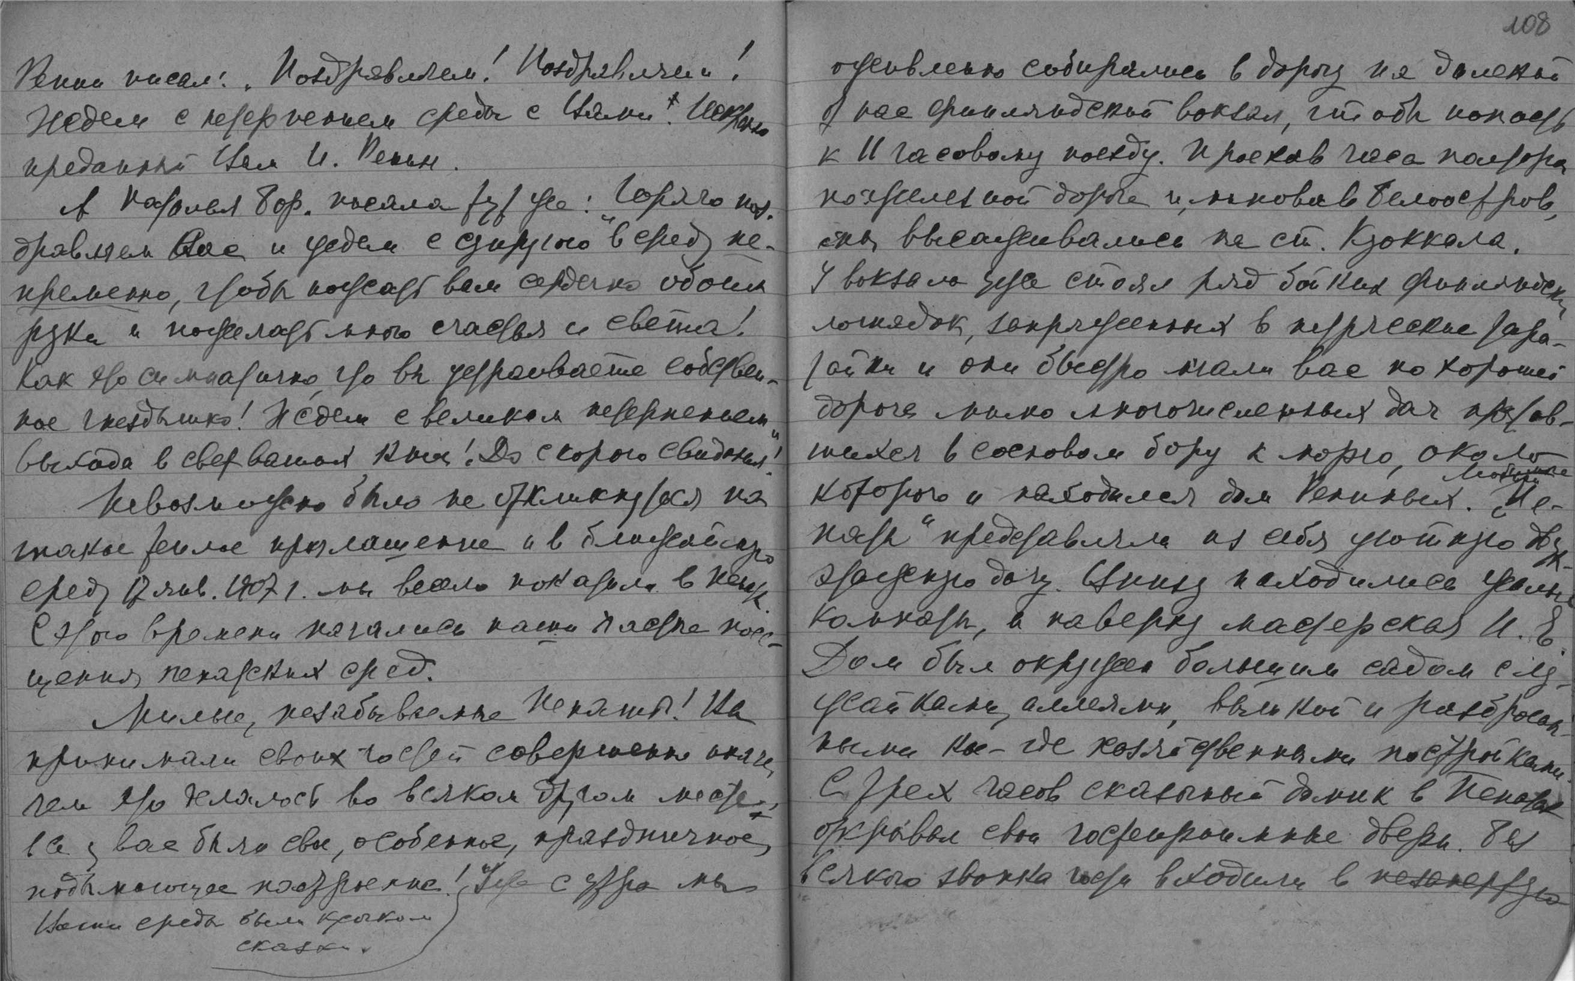 Репин писал: „Поздравляем! Поздравляем!
Ждем с нетерпением среды с Вами! Искренно
преданный Вам И. Репин.
А Наталья Бор. писала тут же: Горячо поз-
дравляем Вас и ждем с супругою в среду не-
пременно, чтобы пожать вам сердечно обоим
руки и пожелать много счастья и света!
Как это симпатично, что вы устраиваете собствен-
ное гнездышко! Ждем с великим нетерпением
выхода в свет ваших книг! До скорого свидания!"
Невозможно было не откликнуться на
такое теплое приглашение и в ближайшую
среду 17 янв. 1907 г. мы весело покатили в Пенат.
С этого времени начались наши частые посе-
щения пенатских сред.
Милые, незабываемые Пенаты! Там
принимали своих гостей совершенно иначе,
чем это делалось во всяком другом месте,
и у вас было свое, особенное, праздничное,
подымающее настроение! Уже с утра мы
Наши среды были кусочком
сказки.
108
оживленно собирались в дорогу на далекий
от нас финляндский вокзал, чтобы попасть
к 11 часовому поезду. Проехав часа полтора
по железной дороге и, миновав Белоостров,
мы высаживались на ст. Куоккала.
У вокзала уже стоял ряд бойких финляндских
лошадок, запряженных в патрческие тара-
тайки и они быстро мчали вас по хорошей
дороге мимо многочисленных дач, прятав-
шихся в сосновом бору к морю, около
которого и находился дом Репиных. „Пе-
наты" представляли из себя уютную двух-
этажную дачу. Внизу находились жилые
комнаты, а наверху мастерская И. Е.
Дом был окружен большим садом с лу-
жайками, аллеями, вышкой и разбросан-
ными кое-где хозяйственными постройками.
С трех часов сказочный домик в Пенатах
открывал свои гостеприимные двери. Без
всякого звонка гости входили в незапертую